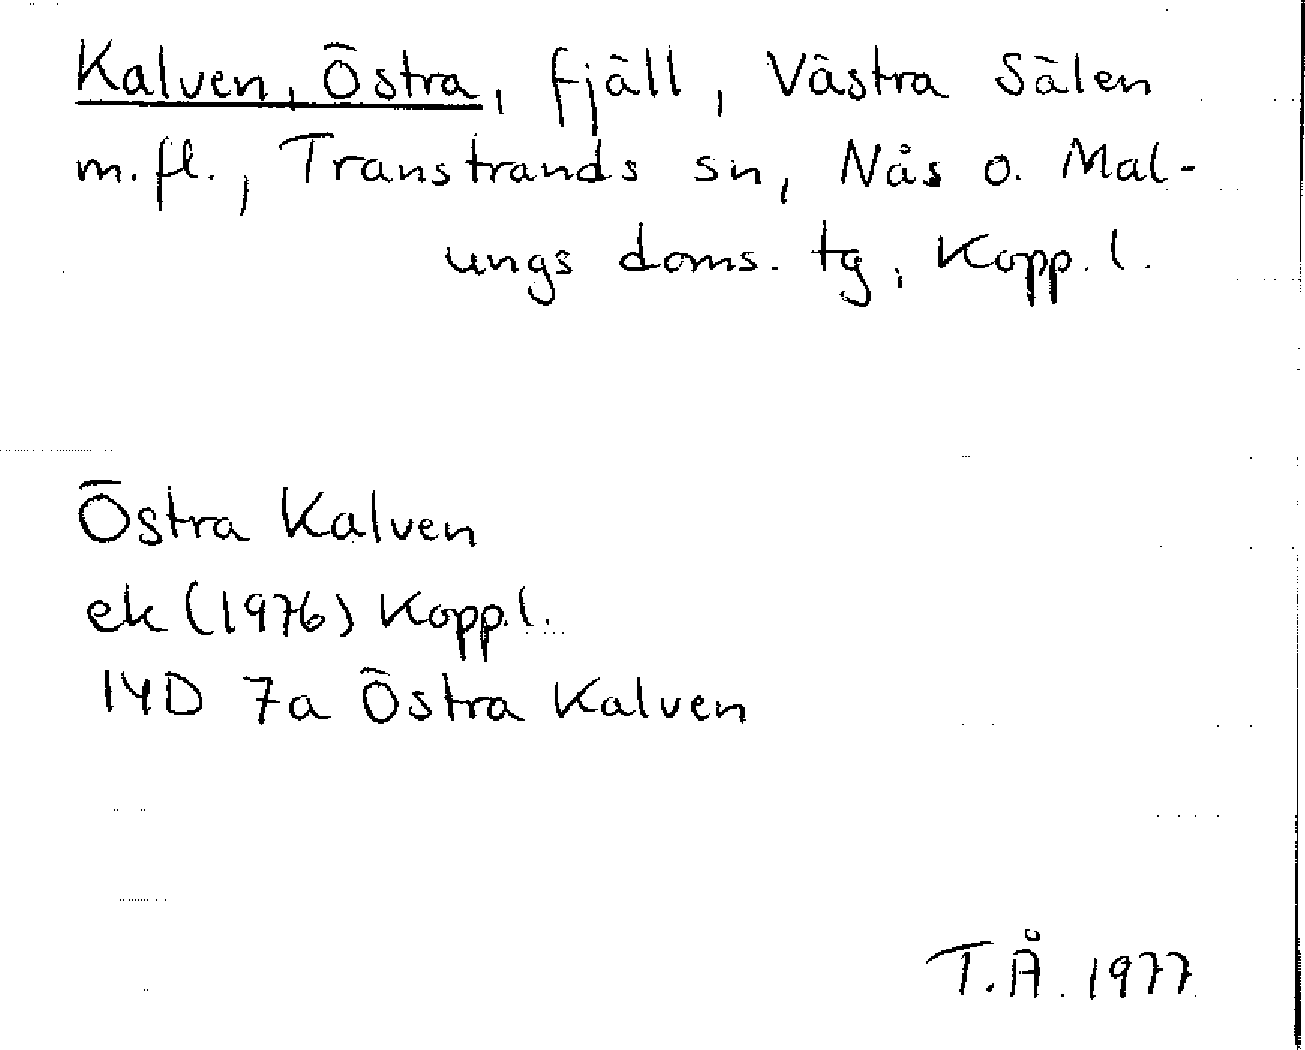 Kalven, Östra, fjäll, Västra Sälen
m.fl., Transtrands sn, Nås o. Mal-
ungs doms. tg, Kopp.l.
Östra Kalven
ek (1976) Kopp.l.
14D 7a Östra Kalven
T.Å. 1977